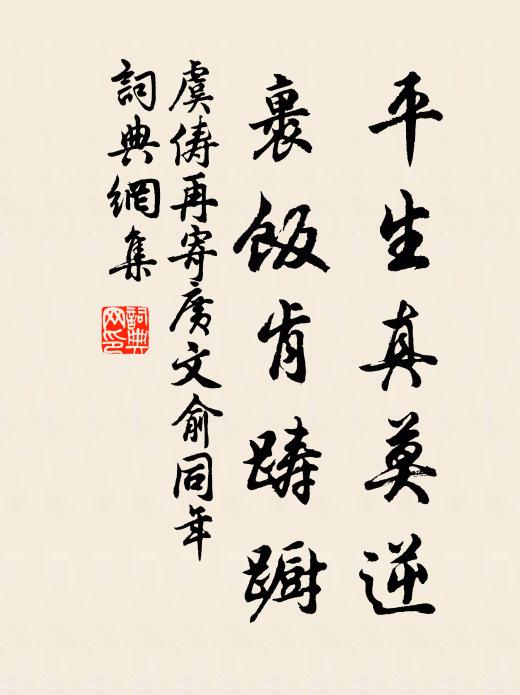 平生真莫逆
裹飯肯躊躕
虞儔再寄廣文俞同年
詞典網集
詞典
网印